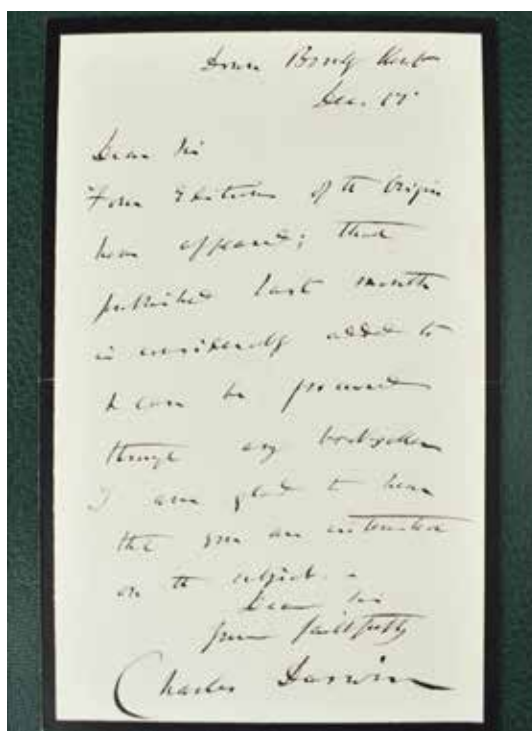 Down Bromley Kent
Dec. 17
Dear Sir
Four Editions of the Origin
have appeared; that
published last month
is considerably added to
& can be procured
through any bookseller
I am glad to hear
that you are interested
on the subject. —
Dear Sir
yours faithfully
Charles Darwin